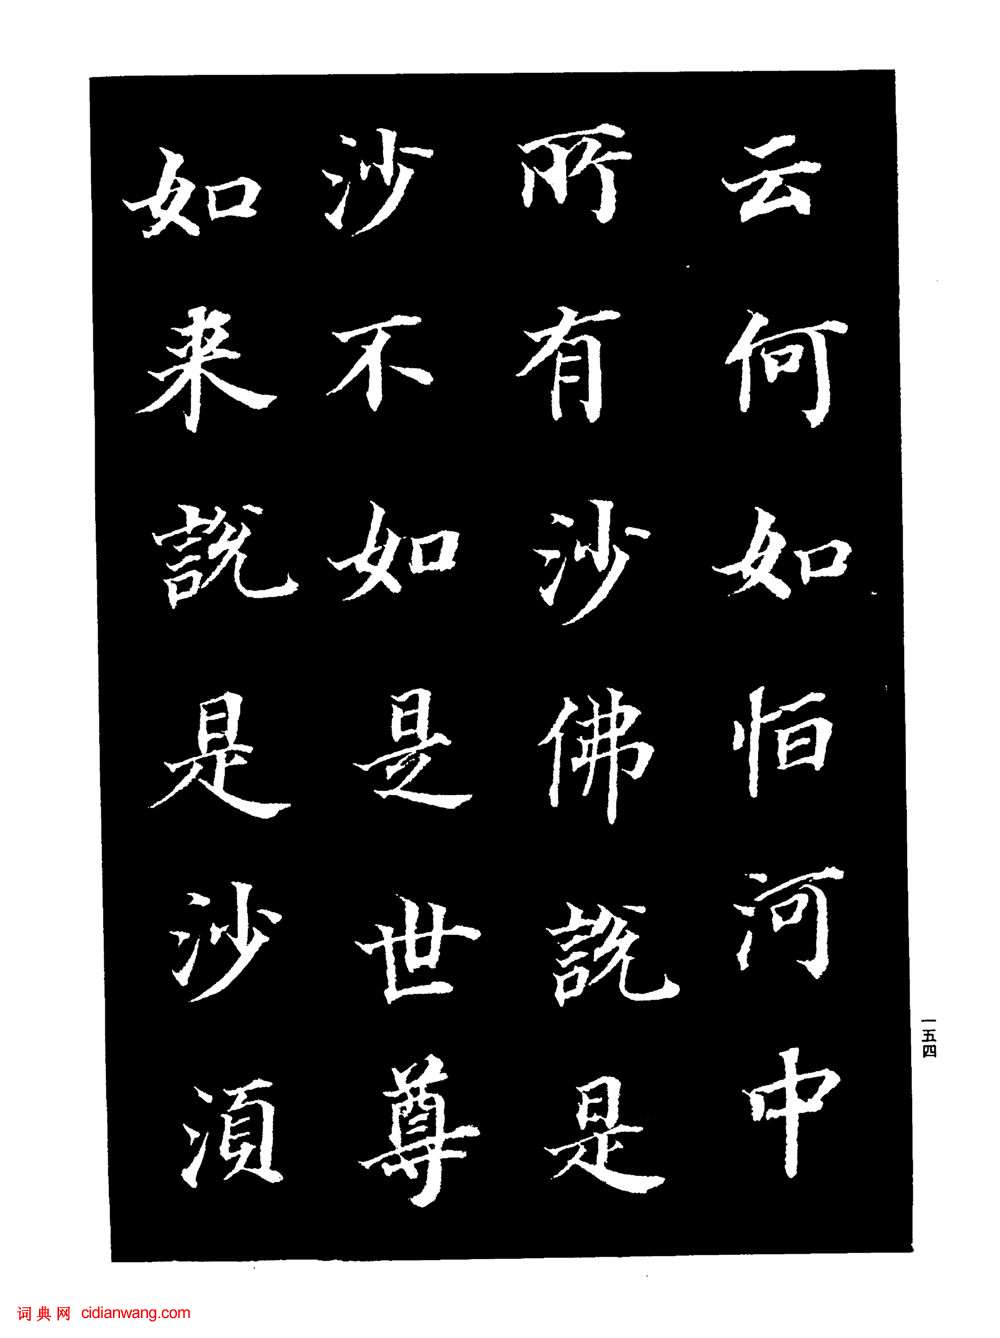 云何如恒河中
所有沙佛說是
沙不如是世尊
如来說是沙湏
一五四
词典网 cidianwang.com